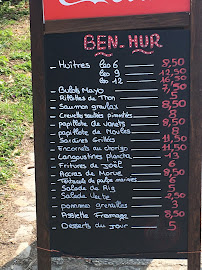 BEN-HUR
Huîtres les 6 8,50
les 9 12,50
les 12 16,50
Bulots Mayo 7,50
Rillettes de Thon
Saumon gravlax 8,50
Crevettes sautées pimentées 8
papillote de
papillote de Moules 8
Sardines Grillées 11,50
Encornets au chorizo 11,50
Langoustines plancha 13
Fritures de Joël 6
Accras de Morue 8,50
Tentacule de poulpe marinée 6
Salade de Riz 5
Salade Verte
pommes grenailles 3
Assiette Fromage 8,50
Desserts du jour 5